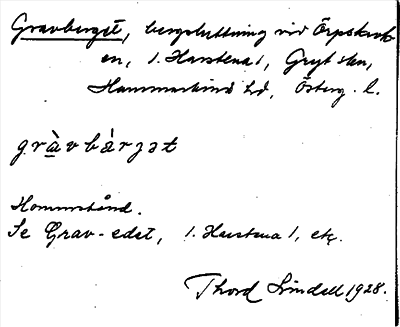 Gravberget, bergsluttning vid Örpskack
en, 1. Harstena 1, Gryt skn,
Hammarkinds hd, Österg. l.
gràvbárjət
Hommstånd.
Se Grav-edet, 1. Harstena 1, etc.
Thord Lindell 1928.